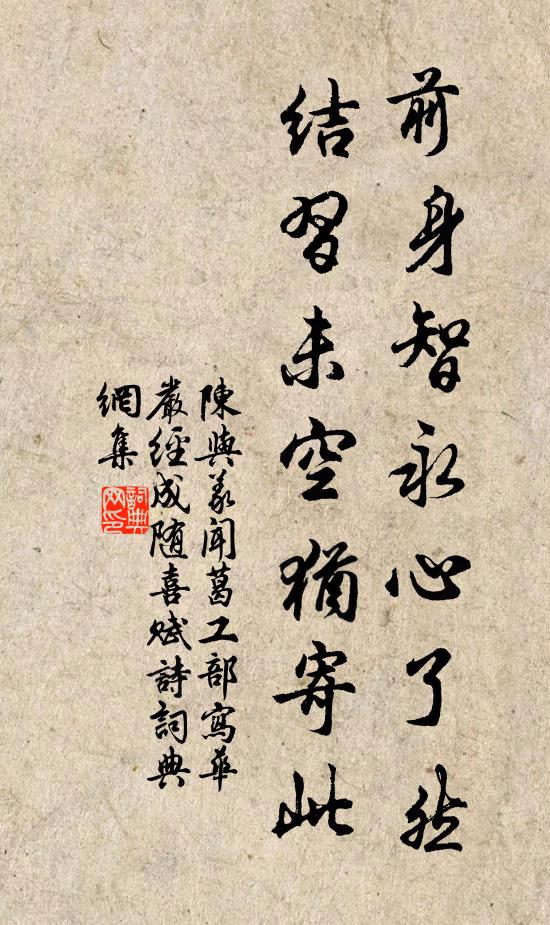 前身智永心了然
結習未空猶寄此
陳與義聞葛工部寫華
嚴經成随喜賦詩詞典
網集
詞典網印